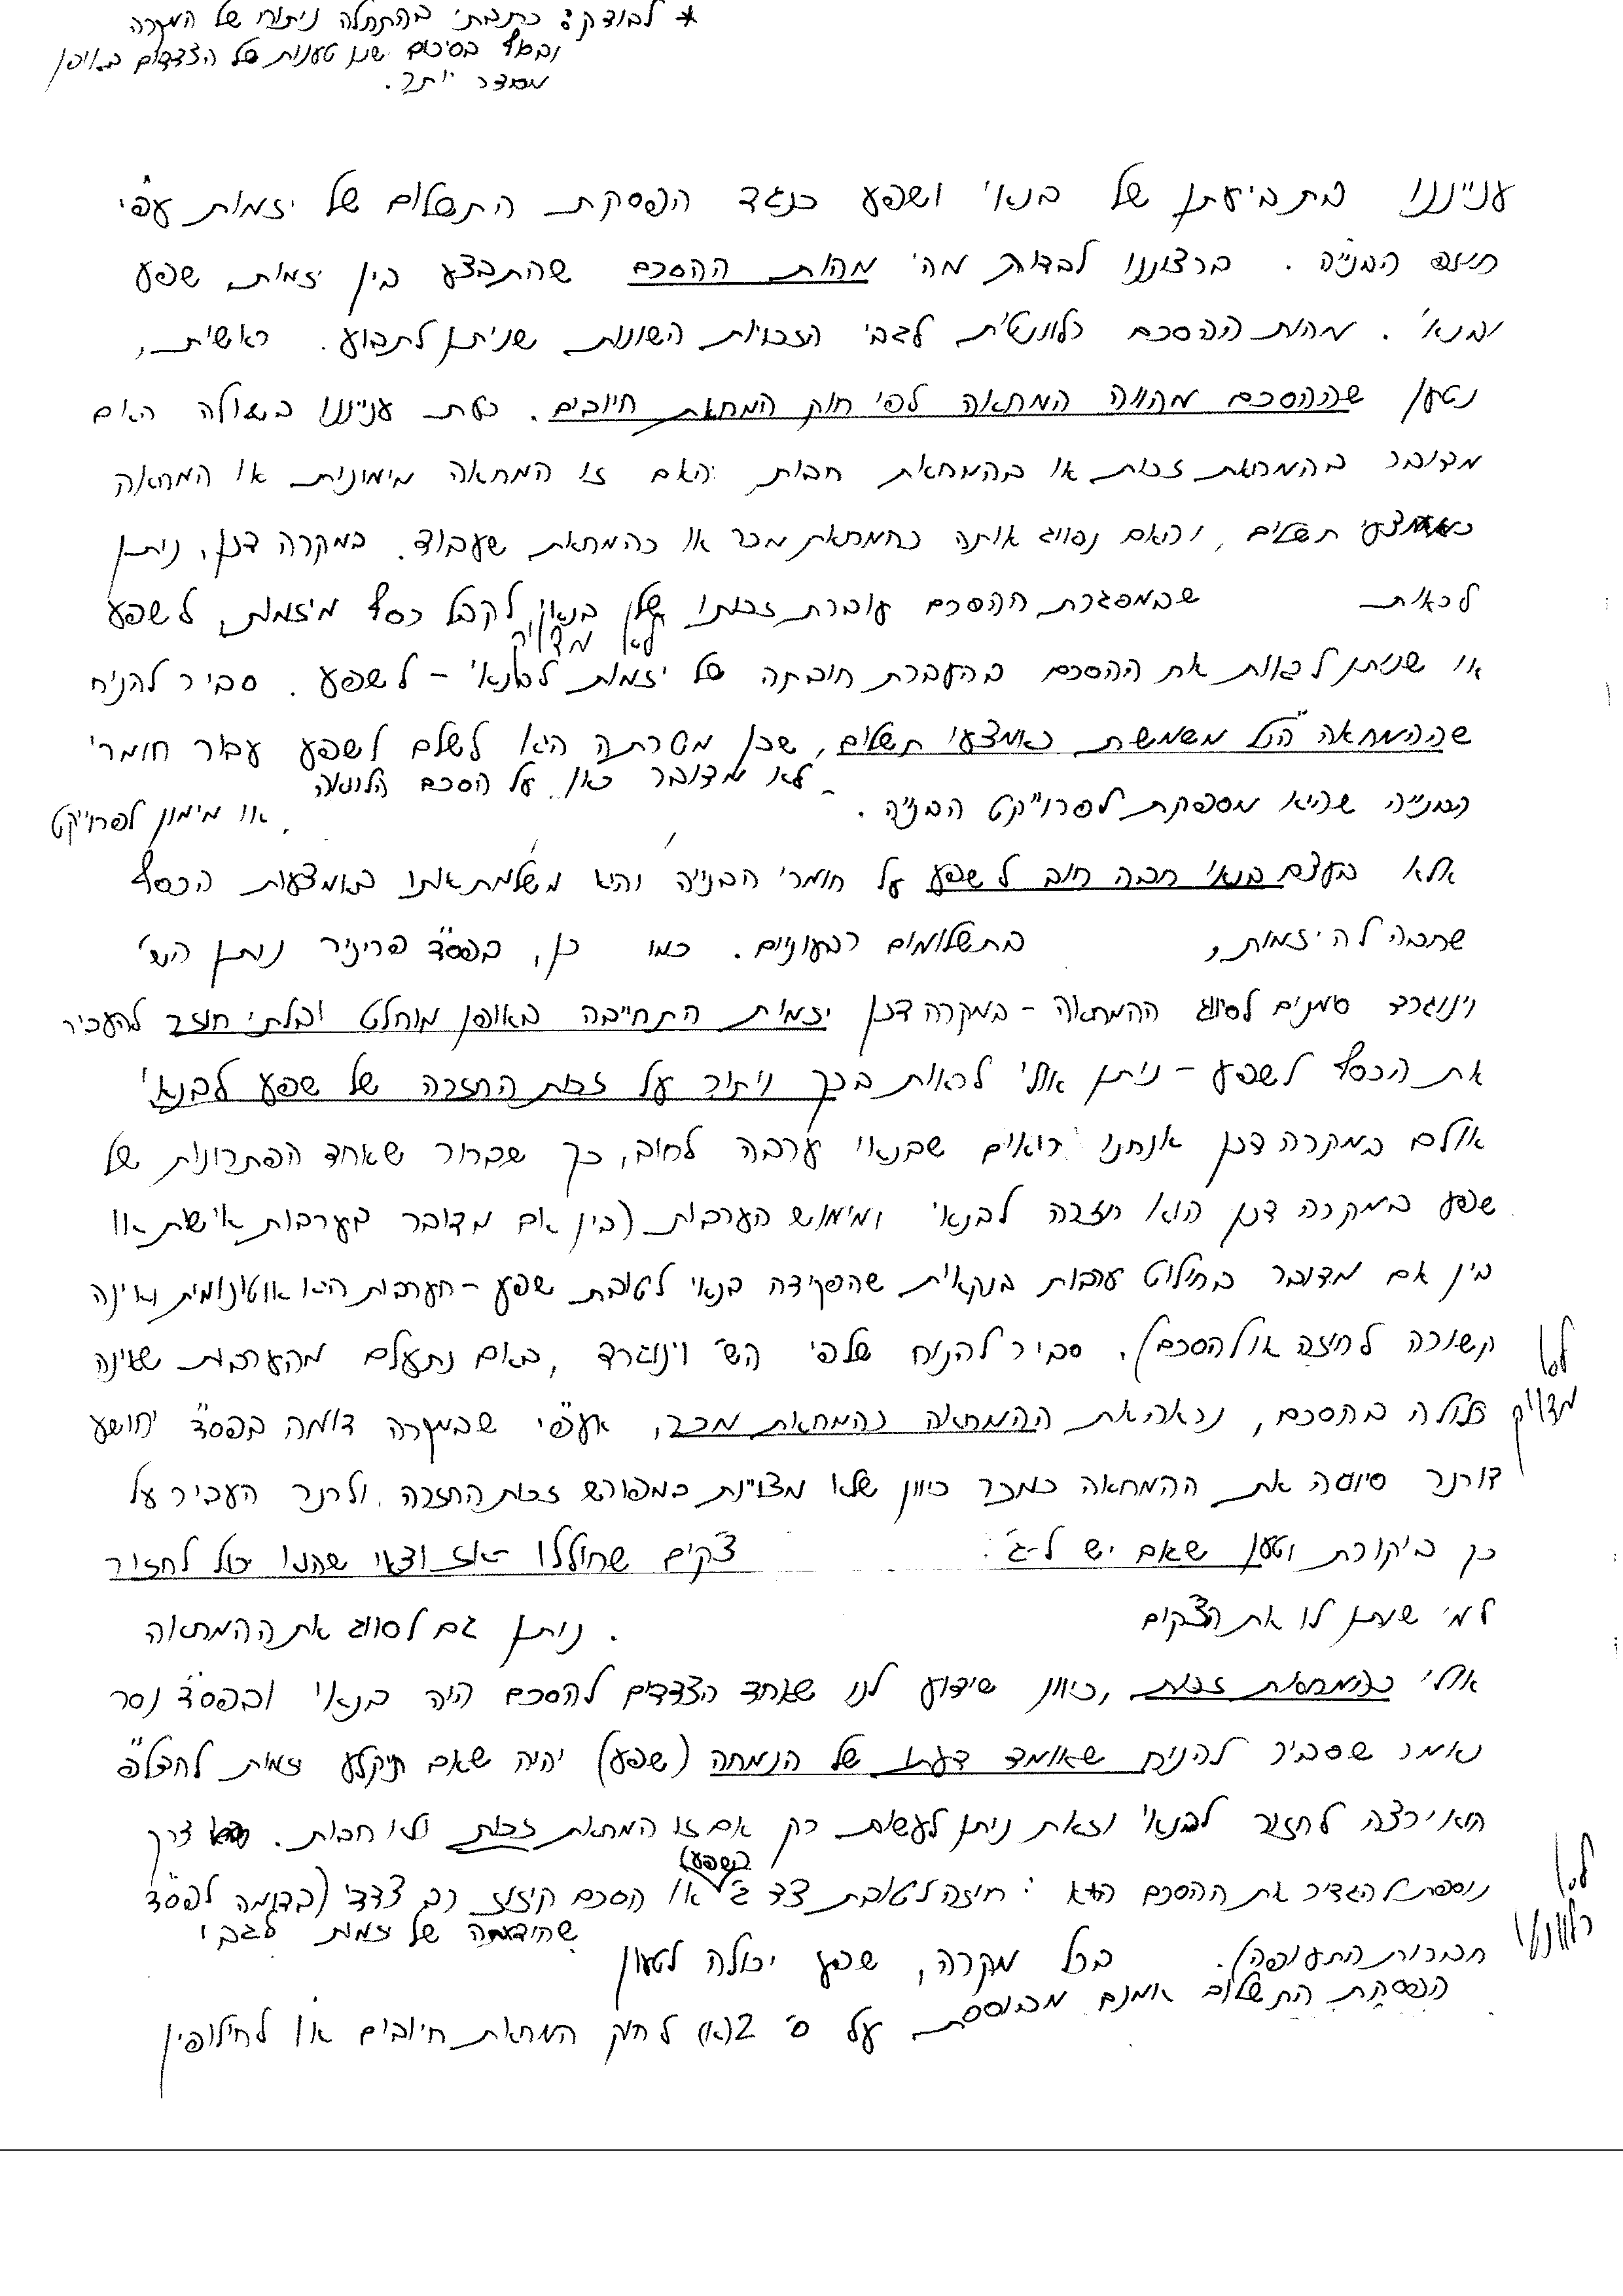 * לבודק: כתבתי בהתחלה ניתוח של המקרה
ובסוף בסיכום ישנן טענות של הצדדים באופן
מסודר יותר.
ענייננו בתביעתן של בנאי ושפע כנגד הפסקת התשלום של יזמות עפ"י
חוזה הבנייה. ברצוננו לבדוק מהי מהות ההסכם שהתבצע בין יזמות, שפע
ובנאי. מהות ההסכם רלוונטית לגבי הזכויות השונות שניתן לתבוע. ראשית,
נטען שההסכם מהווה המחאה לפי חוק המחאת חיובים. כעת ענייננו בשאלה האם
מדובר בהמחאת זכות או בהמחאת חבות, האם זו המחאה מימונית או המחאה
כאמצעי תשלום, והאם נסווג אותה כהמחאת מכר או כהמחאת שעבוד. במקרה דנן, ניתן
לראות שבמסגרת ההסכם עוברת זכותו של בנאי לקבל כסף מיזמות, לשפע
לא מדויק
או שניתן לראות את ההסכם כהעברת חובתה של יזמות לבנאי - לשפע. סביר להניח
שההמחאה הנ"ל משמשת כאמצעי תשלום, שכן מטרתה היא לשלם לשפע עבור חומרי
הבנייה שהיא מספקת לפרוייקט הבנייה. - לא מדובר כאן על הסכם הלוואה
או מימון לפרוייקט,
אלא בעצם בנאי חבה חוב לשפע על חומרי הבנייה והיא משלמת אותו באמצעות הכסף
שחבה לה יזמות, בתשלומים רבעוניים. כמו כן, בפס"ד פריניר נותן הש'
וינוגרד סמנים לסווג ההמחאה - במקרה דנן יזמות התחייבה באופן מוחלט ובלתי חוזר להעביר
את הכסף לשפע - ניתן אולי לראות בכך ויתור על זכות החזרה של שפע לבנאי
אולם במקרה דנן אנחנו רואים שבנאי ערבה לחוב, כך שברור שאחד הפתרונות של
שפע במקרה דנן הוא חזרה לבנאי ומימוש הערבות (בין אם מדובר בערבות אישית או
בין אם מדובר בחילוט ערבות בנקאית שהפקידה בנאי לטובת שפע - הערבות היא אוטונומית ואינה
קשורה לחוזה או להסכם). סביר להניח שלפי הש' וינוגרד, באם נתעלם מהערבות שאינה
לא
מדויק
כלולה בהסכם, נראה את ההמחאה כהמחאת מכר, אע"פ שבמקרה דומה בפס"ד יהושע
דורנר סיווגה את ההמחאה כמכר כיוון שלא מצויינת במפורש זכות החזרה. ולרנר העביר על
כך ביקורת וטען שאם יש ל-ג' צ'קים שחוללו - אז וודאי שהנו יכול לחזור
למי שנתן לו את הצ'קים. ניתן גם לסווג את ההמחאה
אולי כהמחאת זכות, כיוון שידוע לנו שאחד הצדדים להסכם היה בנאי ובפס"ד נסר
נאמר שסביר להניח שאומד דעתו של הנמחה (שפע) יהיה שאם תיקלע יזמות לחדל"פ
הוא ירצה לחזור לבנאי וזאת ניתן לעשות רק אם זו המחאת זכות ולא חבות. דרך
נוספת להגדיר את ההסכם היא: חוזה לטובת צד ג' (כשפע) או הסכם קיזוז רב צדדי (בדומה לפס"ד
לא
רלוונטי
חברות התעופה). בכל מקרה, שפע יכולה לטעון שהודעתה של יזמות לגבי
הפסקת התשלום אומנם מבוססת על ס' 2(א) לחוק המחאת חיובים או לחילופין